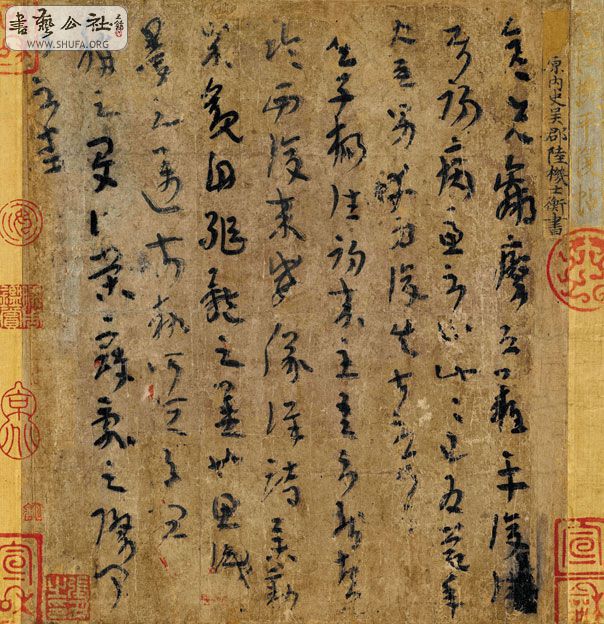 書藝公社
WWW.SHUFA.ORG
原内史吳郡陸機士衡書
彥先羸瘵恐難平復往屬
初病慮不止此此已為慶承
使唯男幸為復失前憂耳
吳子楊往初來主吾不能盡
臨西復來威儀詳跱舉動
成觀自軀體之美也思識
量之邁前執所恒有宜
稱之夏伯榮寇亂之際聞
問不悉
宣和